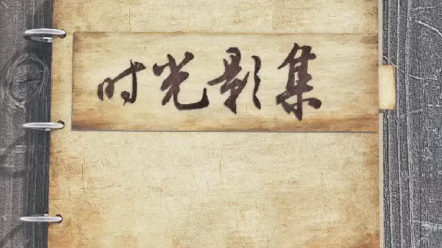 时光影集